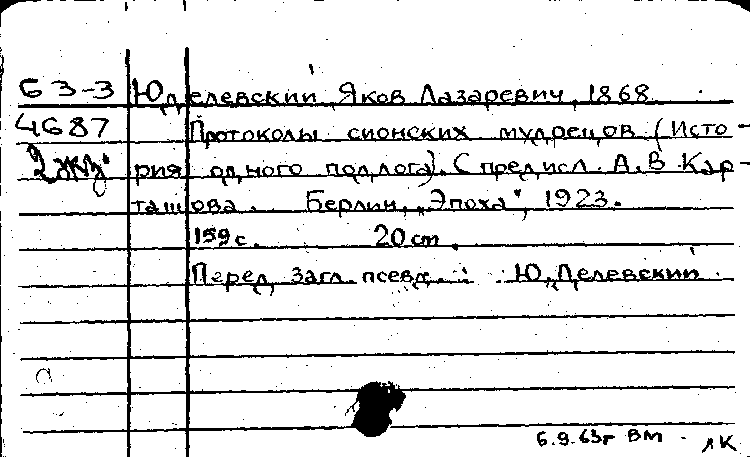 63-3 Юделевский, Яков Лазаревич, 1868
4687 Протоколы сионских мудрецов (Исто-
2 экз. рия одного подлога). С предисл. А.В. Кар-
ташова. Берлин, „Эпоха", 1923.
159 с. 20 cm.
Перед загл. псевд.: Ю. Делевский.
6.9.63г ВМ
ЛК